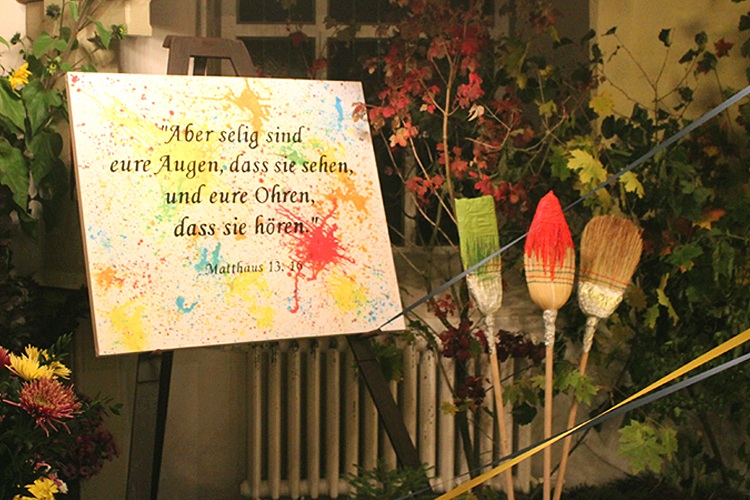 "Aber selig sind
eure Augen, dass sie sehen,
und eure Ohren,
dass sie hören."
Matthäus 13, 16